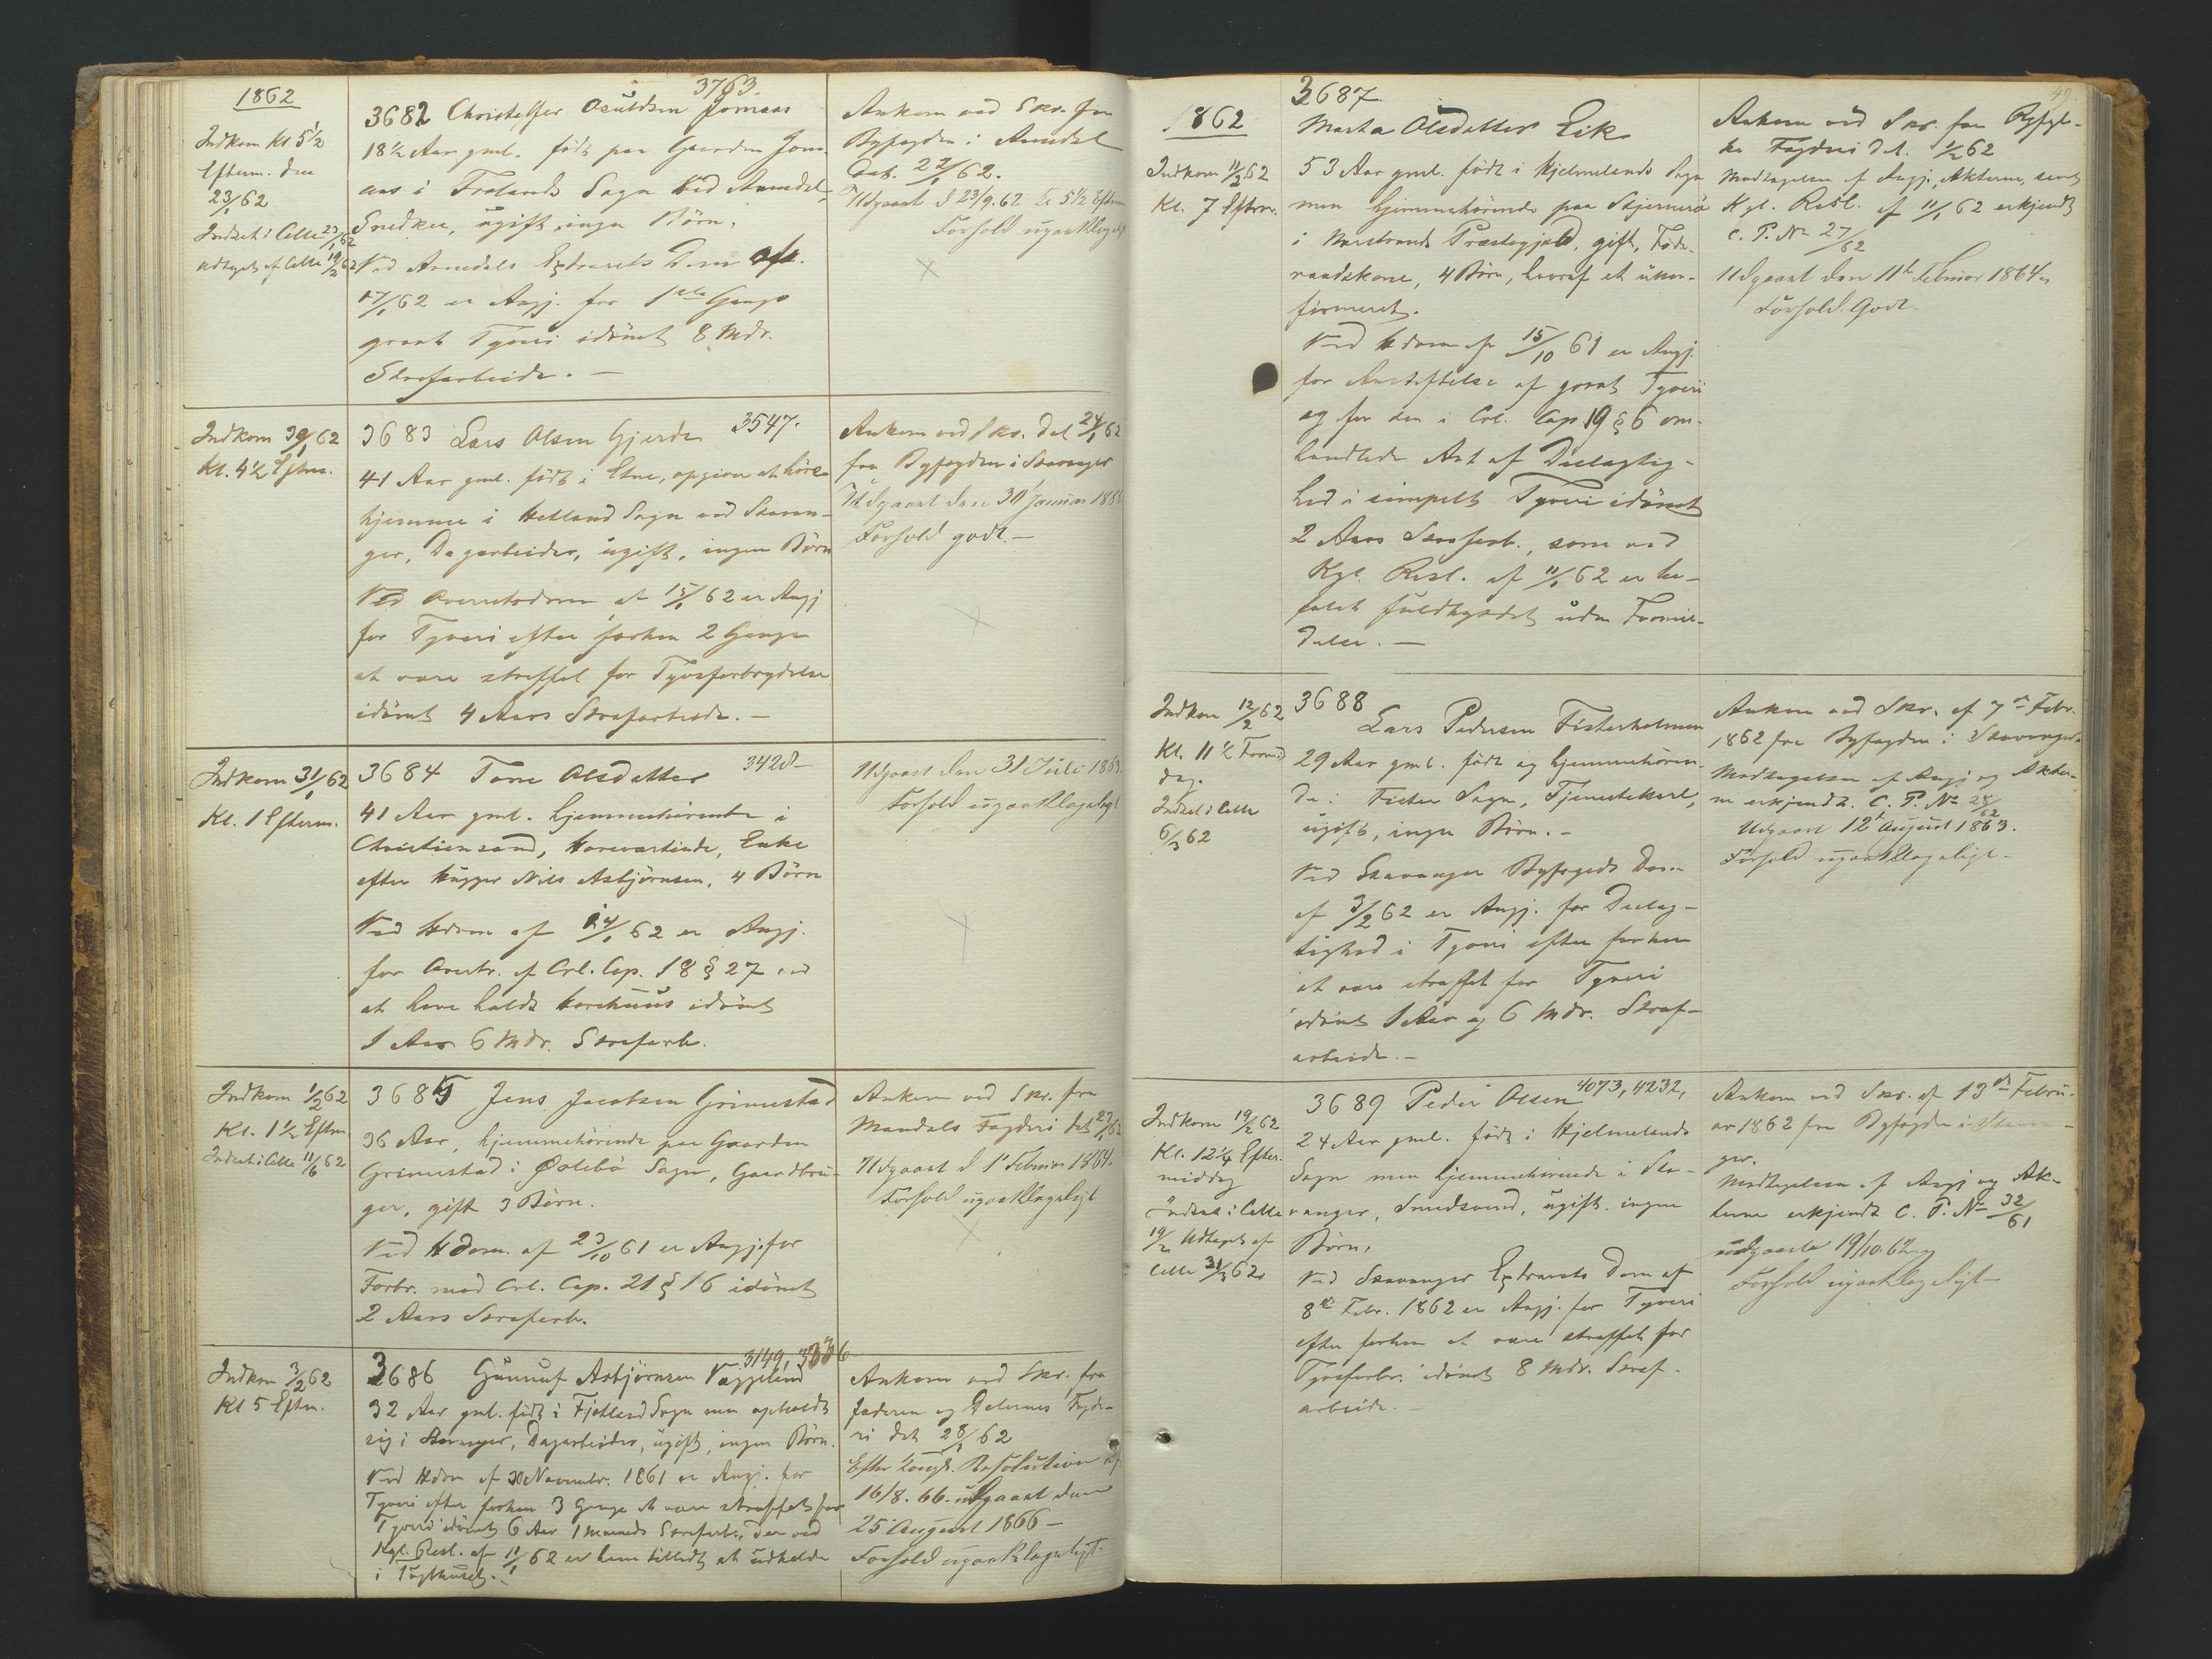 1862
Indkom Kl. 5½
Efterm. den
23/1 62
Indsat i Celle 23/1 62
Udtaget af Celle 19/2 62
3763.
3682 Christoffer Osuldsen Jomaas
18½ Aar gml. født paa Gaarden Jom-
aas i Frolands Sogn ved Arendal,
Snedker, ugift, ingen Børn.
Ved Arendals Extrarets Dom afs.
17/1 62 er Angj. for 1ste Gangs
groat Tyveri idømt 8 Mdr.
Strafarbeide. —
Ankom ved Skr. fra
Byfogden i Arendal
Dat. 22/1 62.
Udgaaet d 23/9. 62 Kl 5½ Efterm
Forhold upaaklageligt
Indkom 30/1 62
Kl. 4½ Efterm.
3683 Lars Olsen Gjerde 3547.
41 Aar gml. født i Etne, opgiver at høre
hjemme i Hetland Sogn ved Stavan-
ger, Dagarbeider, ugift, ingen Børn
Ved Overretsdom af 15/1 62 er Angj
for Tyveri efter forhen 2 Gange
at være straffet for Tyvsforbrydelse
idømt 4 Aars Strafarbeide. —
Ankom ved Skr. dat 24/1 62
fra Byfogden i Stavanger
Udgaaet den 30 Januar 186
Forhold godt. —
Indkom 31/1 62
Kl. 1 Efterm.
3684 Tone Olsdatter 3428 —
41 Aar gml. hjemmehørende i
Christiansand, Horevertinde, Enke
efter Hugger Nils Asbjørnsen, 4 Børn
Ved Hdom af 24/1 62 er Angj.
for Overtr. af Crl. Cap. 18 § 27 ved
at have holdt Horehuus idømt
1 Aar 6 Mdr. Strafarb.
Udgaaet den 31 Juli 1863.
Forhold upaaklageligt
Indkom 1/2 62
Kl. 1½ Efterm
Indsat i Celle 11/6 62
3685 Jens Jacobsen Grimestad
36 Aar, hjemmehørende paa Gaarden
Grimestad i Øslebø Sogn, Gaardbru-
ger, gift 3 Børn.
Ved Hdom. af 23/10 61 er Angj. for
Forbr. mod Crl. Cap. 21 § 16 idømt
2 Aars Strafarb.
Ankom ved Skr. fra
Mandals Fogderi dat 27/1 62
Udgaaet d 1 Februar 1864.
Forhold upaaklageligt
Indkom 3/2 62
Kl 5 Efterm.
3149, 3336
3686 Gunnuf Asbjørnsen Væggeland
32 Aar gml. født i Fjotland Sogn men opholdt
sig i Stavanger, Dagarbeider, ugift, ingen Børn.
Ved Hdom af 30 Novembr. 1861 er Angj. for
Tyveri efter forhen 3 Gange at være straffet for
Tyveri idømt 6 Aar 1 Maaneds Strafarb., der ved
Kgl. Resl. af 11/1 62 er ham tilladt at udholde
i Tugthuset. —
Ankom ved Skr. fra
Jæderen og Dalernes Fogde-
ri dat 28/1 62
Efter Kongl. Resolution af
16/8. 66. udgaaet den
25 August 1866 —
Forhold upaaklageligt.
49.
1862
Indkom 11/2 62
Kl. 7 Efterm.
3687
Marta Olsdatter Eik
53 Aar gml. født i Hjelmelands Sogn
men hjemmehørende paa Stjernerø
i Nærstrands Præstegjeld, gift, Føde-
raadskone, 4 Børn, hvoraf et ukon-
firmeret.
Ved Hdom af 15/10 61 er Angj.
for Anstiftelse af groat Tyveri
og for den i Crl. Cap 19 § 6 om-
handlede Art af Deelagtig-
hed i simpelt Tyveri idømt
2 Aars Strafarb., som ved
Kgl. Resl. af 11/1 62 er be-
falet fuldbyrdet uden Formil-
delse. —
Ankom ved Skr. fra Ryfyl-
ke Fogderi dat. 1/2 62
Modtagelsen af Angj., Akterne, samt
Kgl. Resl. af 11/1 62 erkjendt
C. P. No 27/62
Udgaaet den 11te Februar 1864
Forhold Godt.
Indkom 12/2 62
Kl. 11½ Formid
dag.
Indsat i Celle
6/3 62
3688
Lars Pedersen Fisterholmen
29 Aar gml. født og hjemmehøren-
de i Fister Sogn, Tjenestekarl,
ugift, ingen Børn. —
Ved Stavanger Byfogeds Dom
af 3/2 62 er Angj. for Deelag-
tighed i Tyveri efter forhen
at være straffet for Tyveri
idømt 1 Aar og 6 Mdr. Straf-
arbeide. —
Ankom ved Skr. af 7de Febr.
1862 fra Byfogden i Stavanger
Modtagelsen af Angj og Akter-
ne erkjendt. C. P. No 28/62
Udgaaet 12te August 1863.
Forhold upaaklageligt —
Indkom 19/2 62
Kl. 12¼ Efter-
middag
Indsat i Celle
19/2 Udtaget af
Celle 31/3 62
4073, 4232,
3689 Peder Olsen
24 Aar gml. født i Hjelmelands
Sogn men hjemmehørende i Sta-
vanger, Smedsvend, ugift, ingen
Børn.
Ved Stavanger Extrarets Dom af
8de Febr. 1862 er Angj. for Tyveri
efter forhen at være straffet for
Tyvsforbr. idømt 8 Mdr. Straf-
arbeide. —
Ankom ved Skr. af 13de Febru-
ar 1862 fra Byfogden i Stavan-
ger.
Modtagelsen af Angj og Ak-
terne erkjendt C. P. No 32/61
udgaaet 19/10. 62
Forhold upaaklageligt —